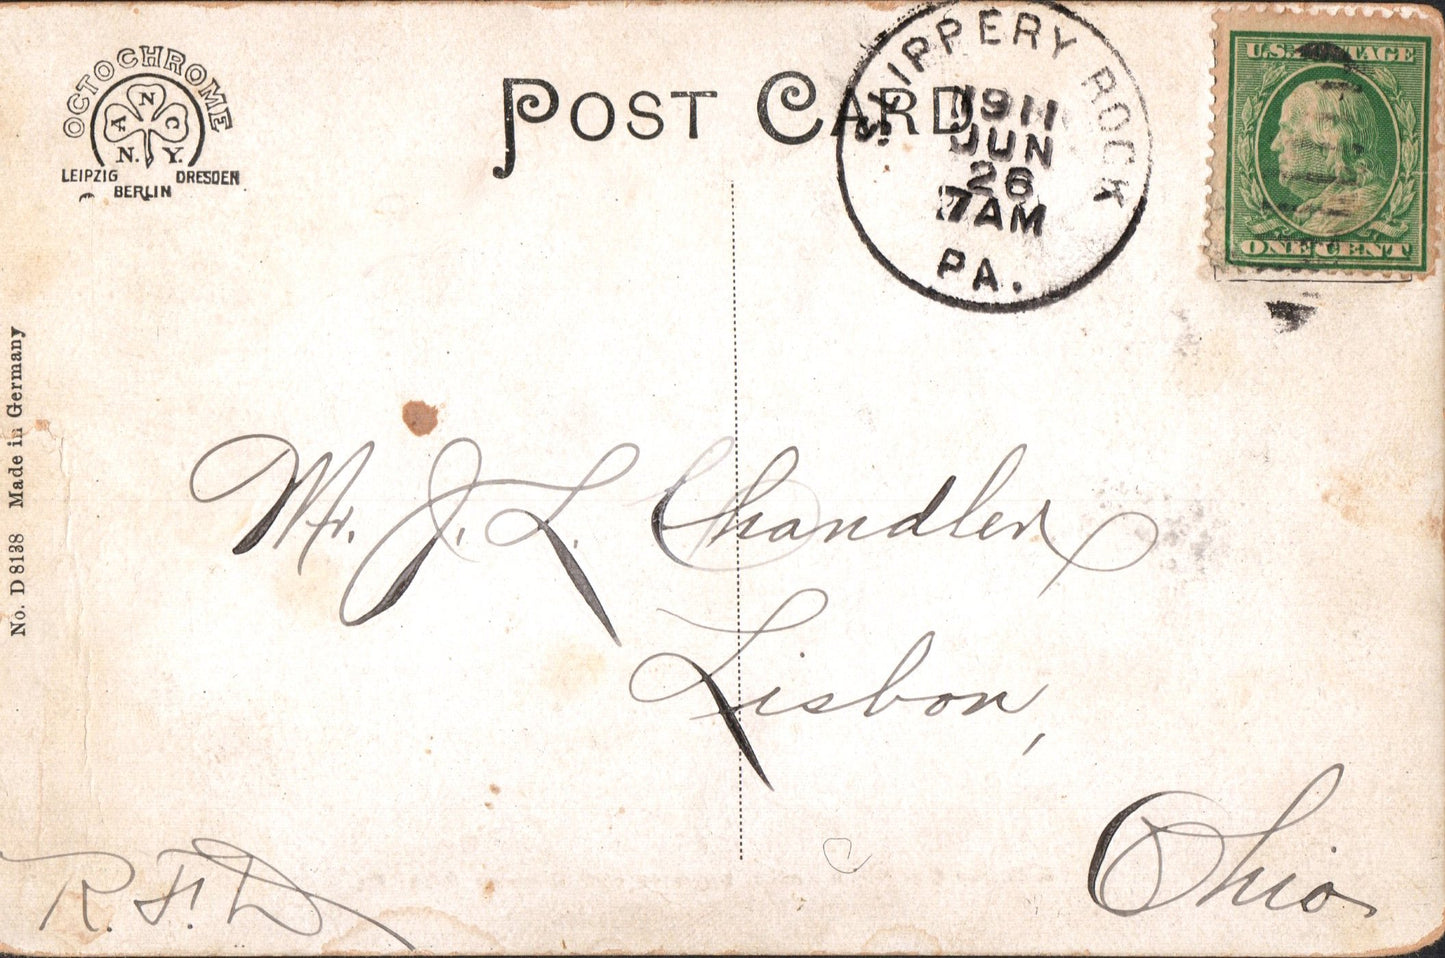 OCTOCHROME
A N C
N. Y.
LEIPZIG DRESDEN
BERLIN
POST CARD
SLIPPERY ROCK
1911
JUN
26
7AM
PA.
U.S. POSTAGE
ONE CENT
No. D 8138 Made in Germany
Mr. J. L. Chandler
Lisbon,
Ohio
R. F. D.